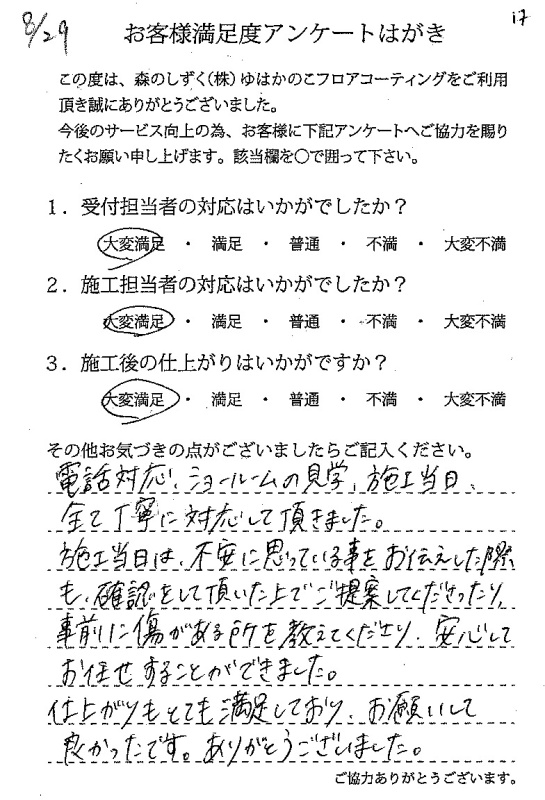 8/29
17
お客様満足度アンケートはがき
この度は、森のしずく(株)ゆはかのこフロアコーティングをご利用
頂き誠にありがとうございました。
今後のサービス向上の為、お客様に下記アンケートへご協力を賜り
たくお願い申し上げます。該当欄を〇で囲って下さい。
1．受付担当者の対応はいかがでしたか？
大変満足 ・ 満足 ・ 普通 ・ 不満 ・ 大変不満
2．施工担当者の対応はいかがでしたか？
大変満足 ・ 満足 ・ 普通 ・ 不満 ・ 大変不満
3．施工後の仕上がりはいかがですか？
大変満足 ・ 満足 ・ 普通 ・ 不満 ・ 大変不満
その他お気づきの点がございましたらご記入ください。
電話対応、ショールームの見学、施工当日、
全て丁寧に対応して頂きました。
施工当日は、不安に思っている事をお伝えした際
も、確認をして頂いた上でご提案してくださったり、
事前に傷がある所を教えてくださり、安心して
お任せすることができました。
仕上がりもとても満足しており、お願いして
良かったです。ありがとうございました。
ご協力ありがとうございます。